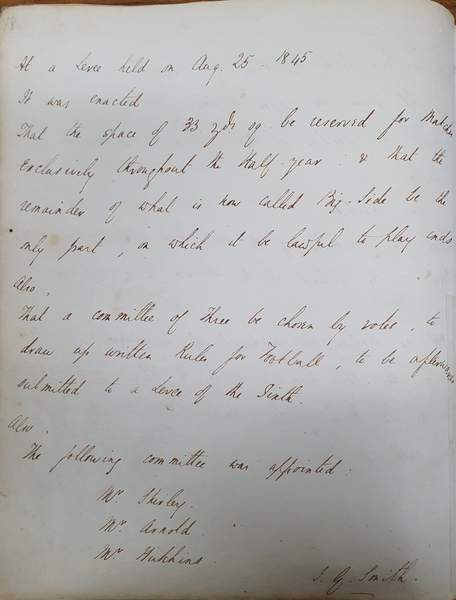 At a Levee held on Aug. 25. 1845
It was enacted
That the space of 33 yds sq. be reserved for Matches
exclusively throughout the Half year. & that the
remainder of what is now called Big-Side be the
only part, on which it be lawful to play
Also,
That a committee of Three be chosen by votes, to
draw up written Rules for Football, to be afterwards
submitted to a Levee of the Sixth.
Also.
The following committee was appointed.
Mr. Shirley.
Mr. Arnold.
Mr. Hutchins.
Smith.